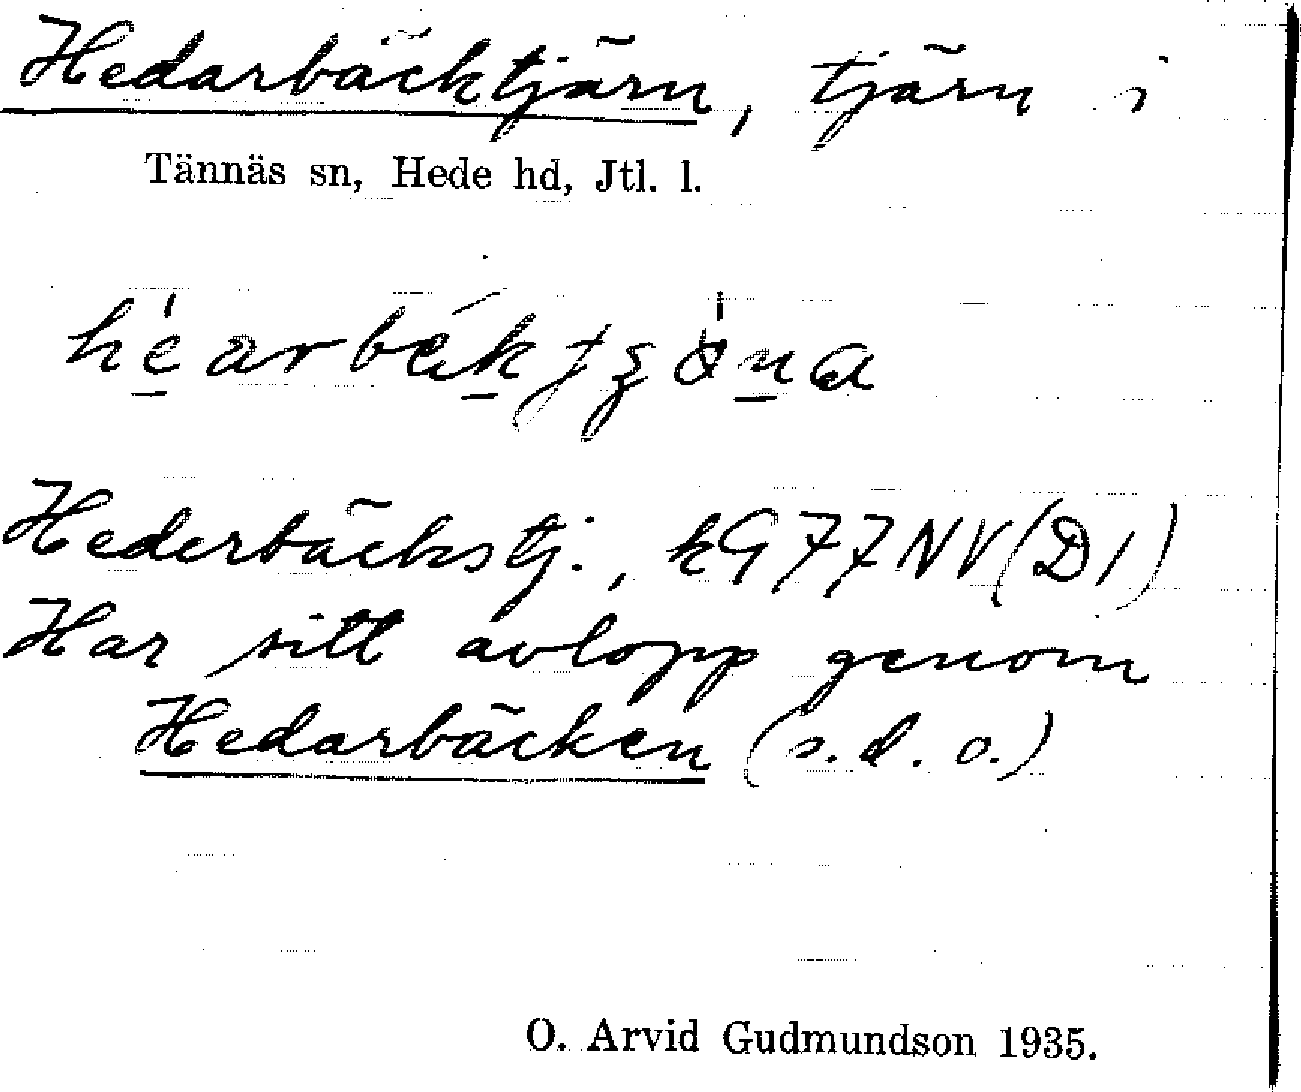 Hedarbäcktjärn, tjärn i
Tännäs sn, Hede hd, Jtl. l.
Hederbäckstj., kG77NV(D1)
Har sitt avlopp genom
Hedarbäcken (s.d.o.)
O. Arvid Gudmundson 1935.